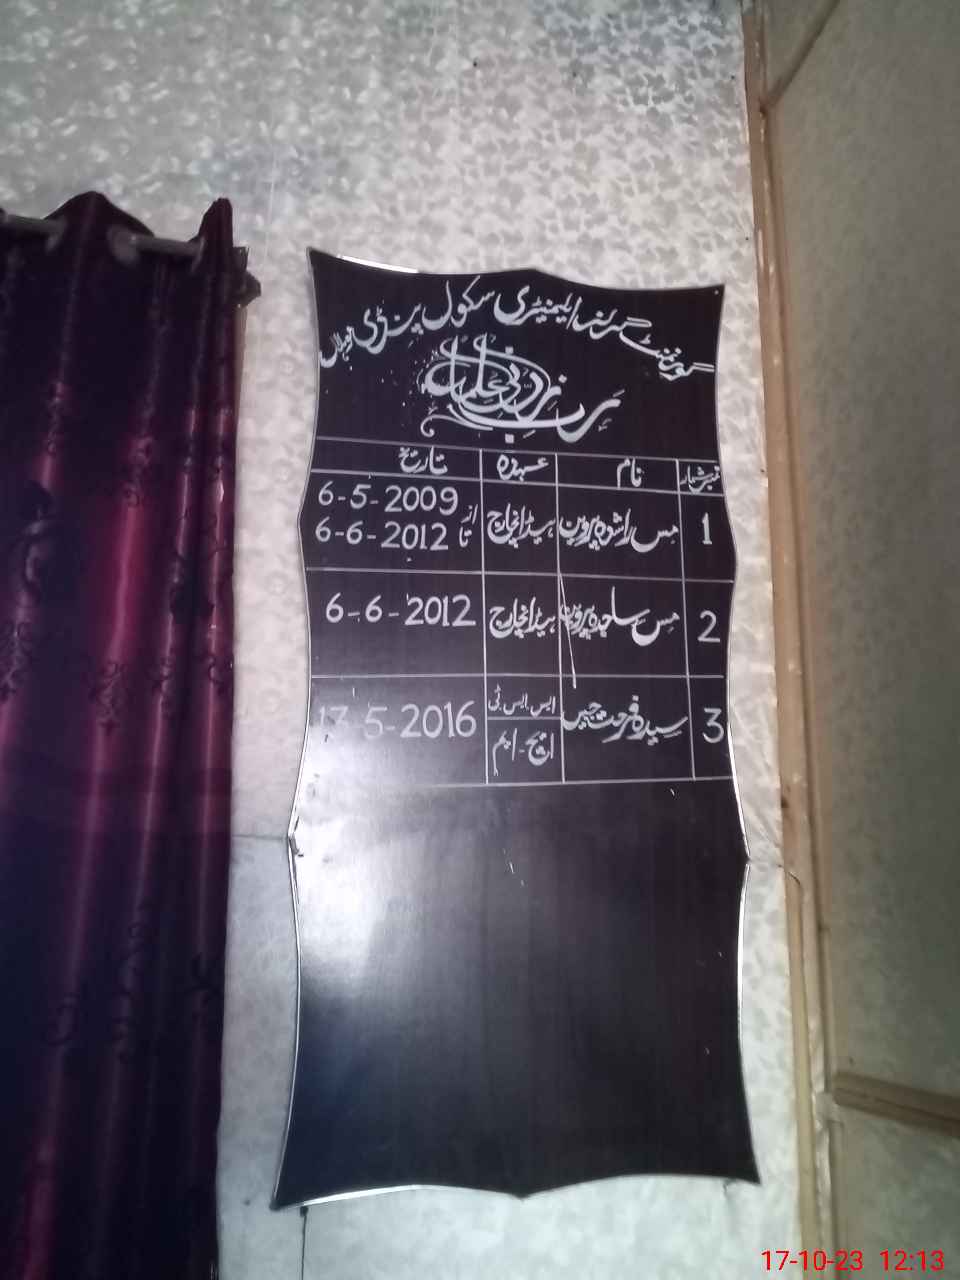 گورنمنٹ گرلز ایلیمنٹری سکول پنڈی
رب زدنی علما
نمبر شمار نام عہدہ تاریخ
1 مس راشدہ پروین ہیڈ انچارج از 6-5-2009
تا 6-6-2012
2 مس ساجدہ پروین ہیڈ انچارج 6-6-2012
3 سیدہ فرحت جبیں ایس ایس ٹی 5-2016
ایچ-ایم
17-10-23 12:13